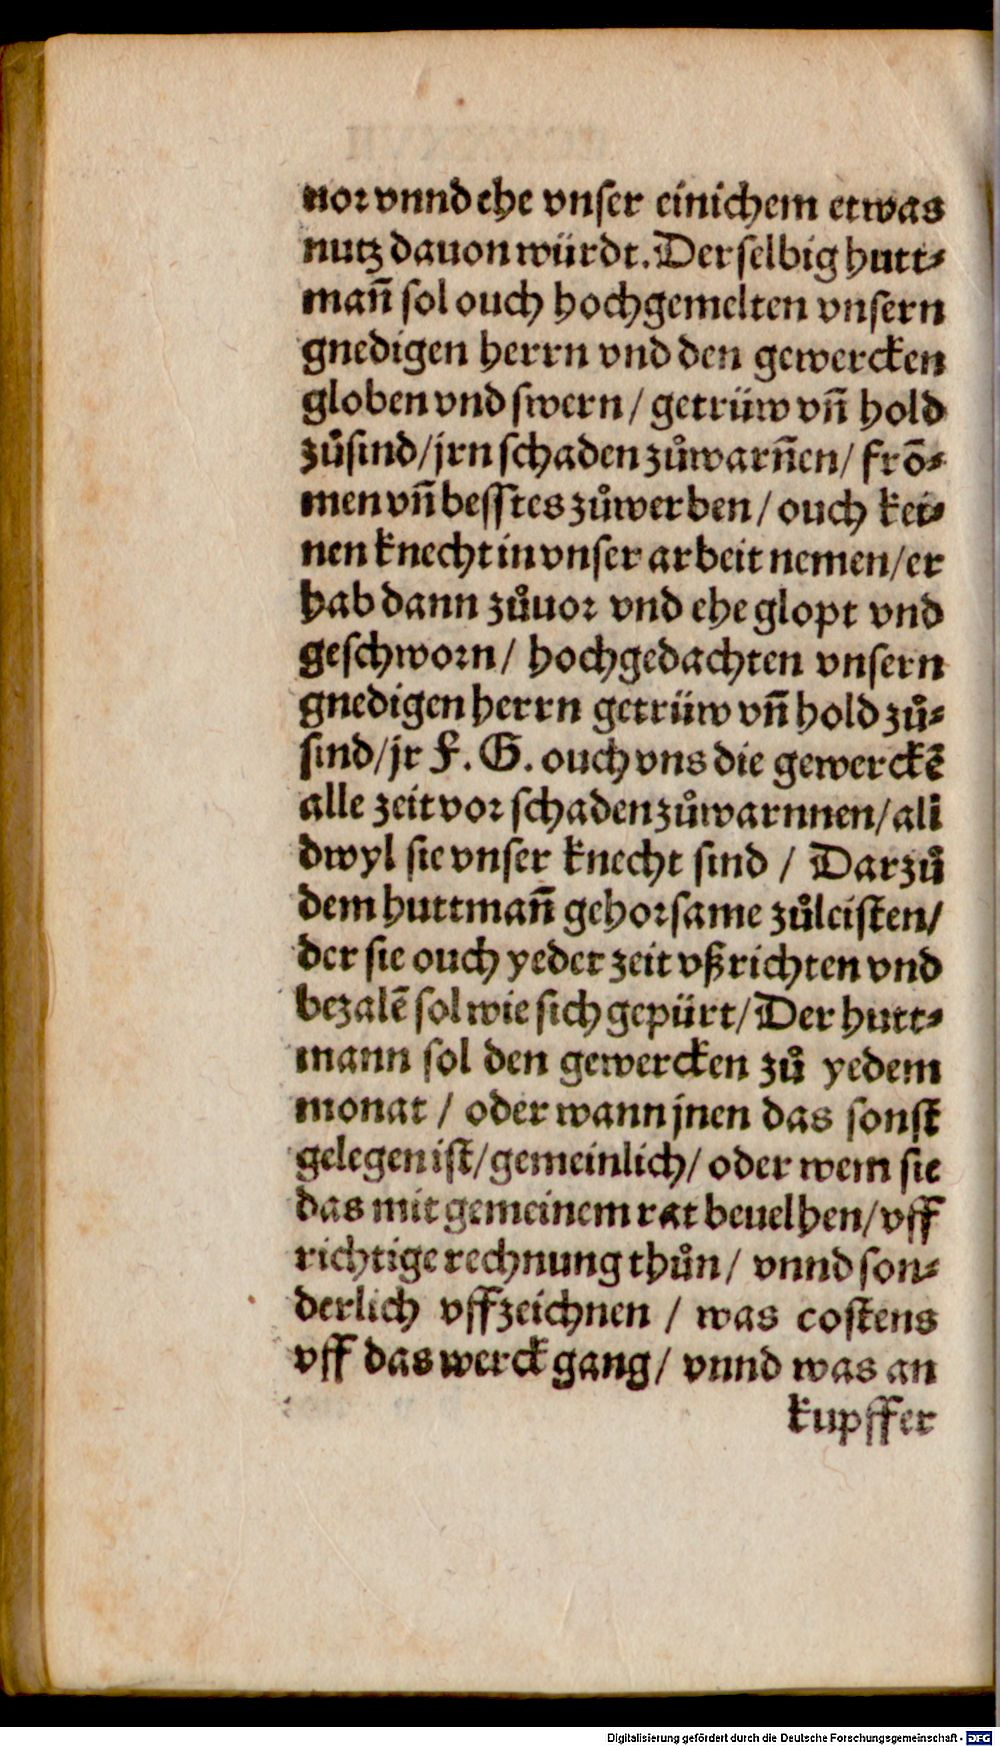 uor vnnd ehe vnser einichem etwas
nutz dauon würdt. Der selbig hutt⸗
mañ sol ouch hochgemelten vnsern
gnedigen herrn vnd den gewercken
globen vnd swern / getrüw vñ hold
zůsind / jrn schaden zůwarñen / frō⸗
men vñ besstes zůwerben / ouch kei⸗
nen knecht in vnser arbeit nemen / er
hab dann zůuor vnd ehe glopt vnd
geschworn / hochgedachten vnsern
gnedigen herrn getrüw vñ hold zů⸗
sind / jr F. G. ouch vns die gewerckē
alle zeit vor schaden zůwarnnen / all
dwyl sie vnser knecht sind / Darzů
dem huttmañ gehorsame zůleisten /
der sie ouch yeder zeit vßrichten vnd
bezalē sol wie sich gepürt / Der hutt⸗
mann sol den gewercken zů yedem
monat / oder wann jnen das sonst
gelegen ist / gemeinlich / oder wem sie
das mit gemeinem rat beuelhen / vff
richtige rechnung thůn / vnnd son⸗
derlich vffzeichnen / was costens
vff das werck gang / vnnd was an
kupffer
Digitalisierung gefördert durch die Deutsche Forschungsgemeinschaft - DFG